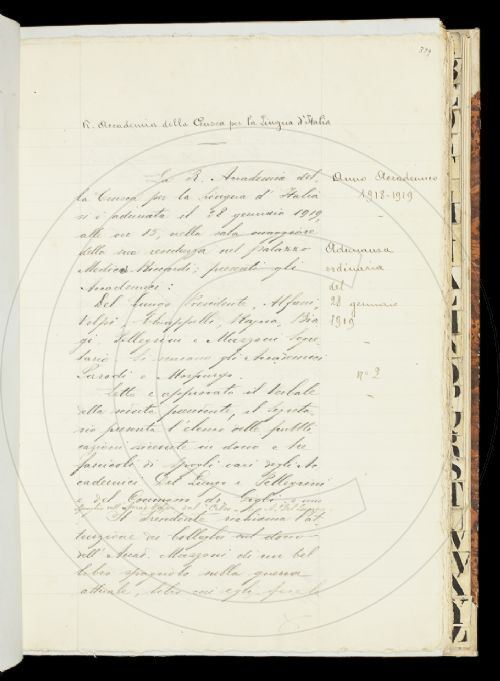 329
R. Accademia della Crusca per la Lingua d'Italia
La R. Accademia del-
la Crusca per la Lingua d'Italia
si è adunata il 28 gennaio 1919,
alle ore 15, nella sala maggiore
della sua residenza nel palazzo
Mediceo Riccardi; presenti gli
Accademici:
Del Lungo Presidente, Alfani,
Volpi, Chiappelli, Rajna, Bia-
gi, Pellegrini e Mazzoni Segre-
tario. Si scusano gli Accademici
Parodi e Morpurgo.
Letto e approvato il Verbale
della seduta precedente, il Segreta-
rio presenta l'elenco delle pubbli-
cazioni ricevute in dono e tre
fascicoli di spogli fatti dagli Ac-
cademici Del Lungo e Pellegrini
e del
Il Presidente richiama l'at-
tenzione dei Colleghi sul dono
dell'Accad. Mazzoni di un bel
libro spagnolo sulla guerra
attuale, libro cui egli fece la
Anno Accademico
1918-1919
Adunanza
ordinaria
del
28 gennaio
1919
n° 2